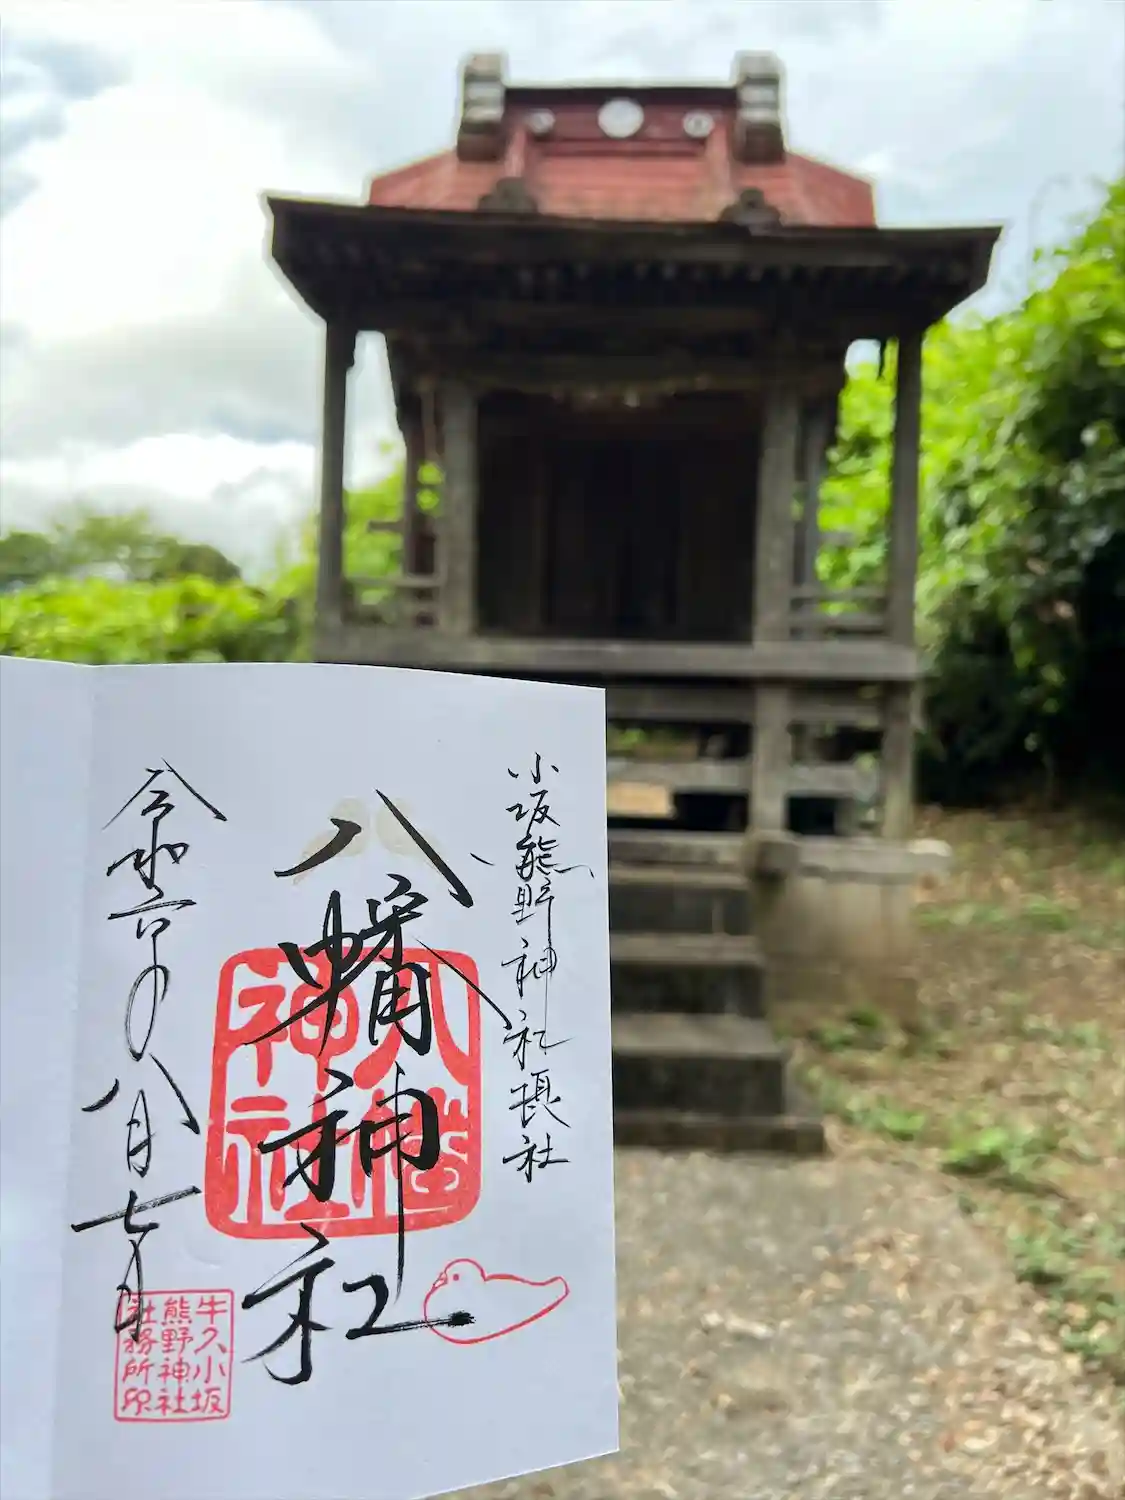 小坂熊野神社摂社
八幡神社
八幡
神社
令和六年八月七日
牛久小坂
熊野神社
社務所印